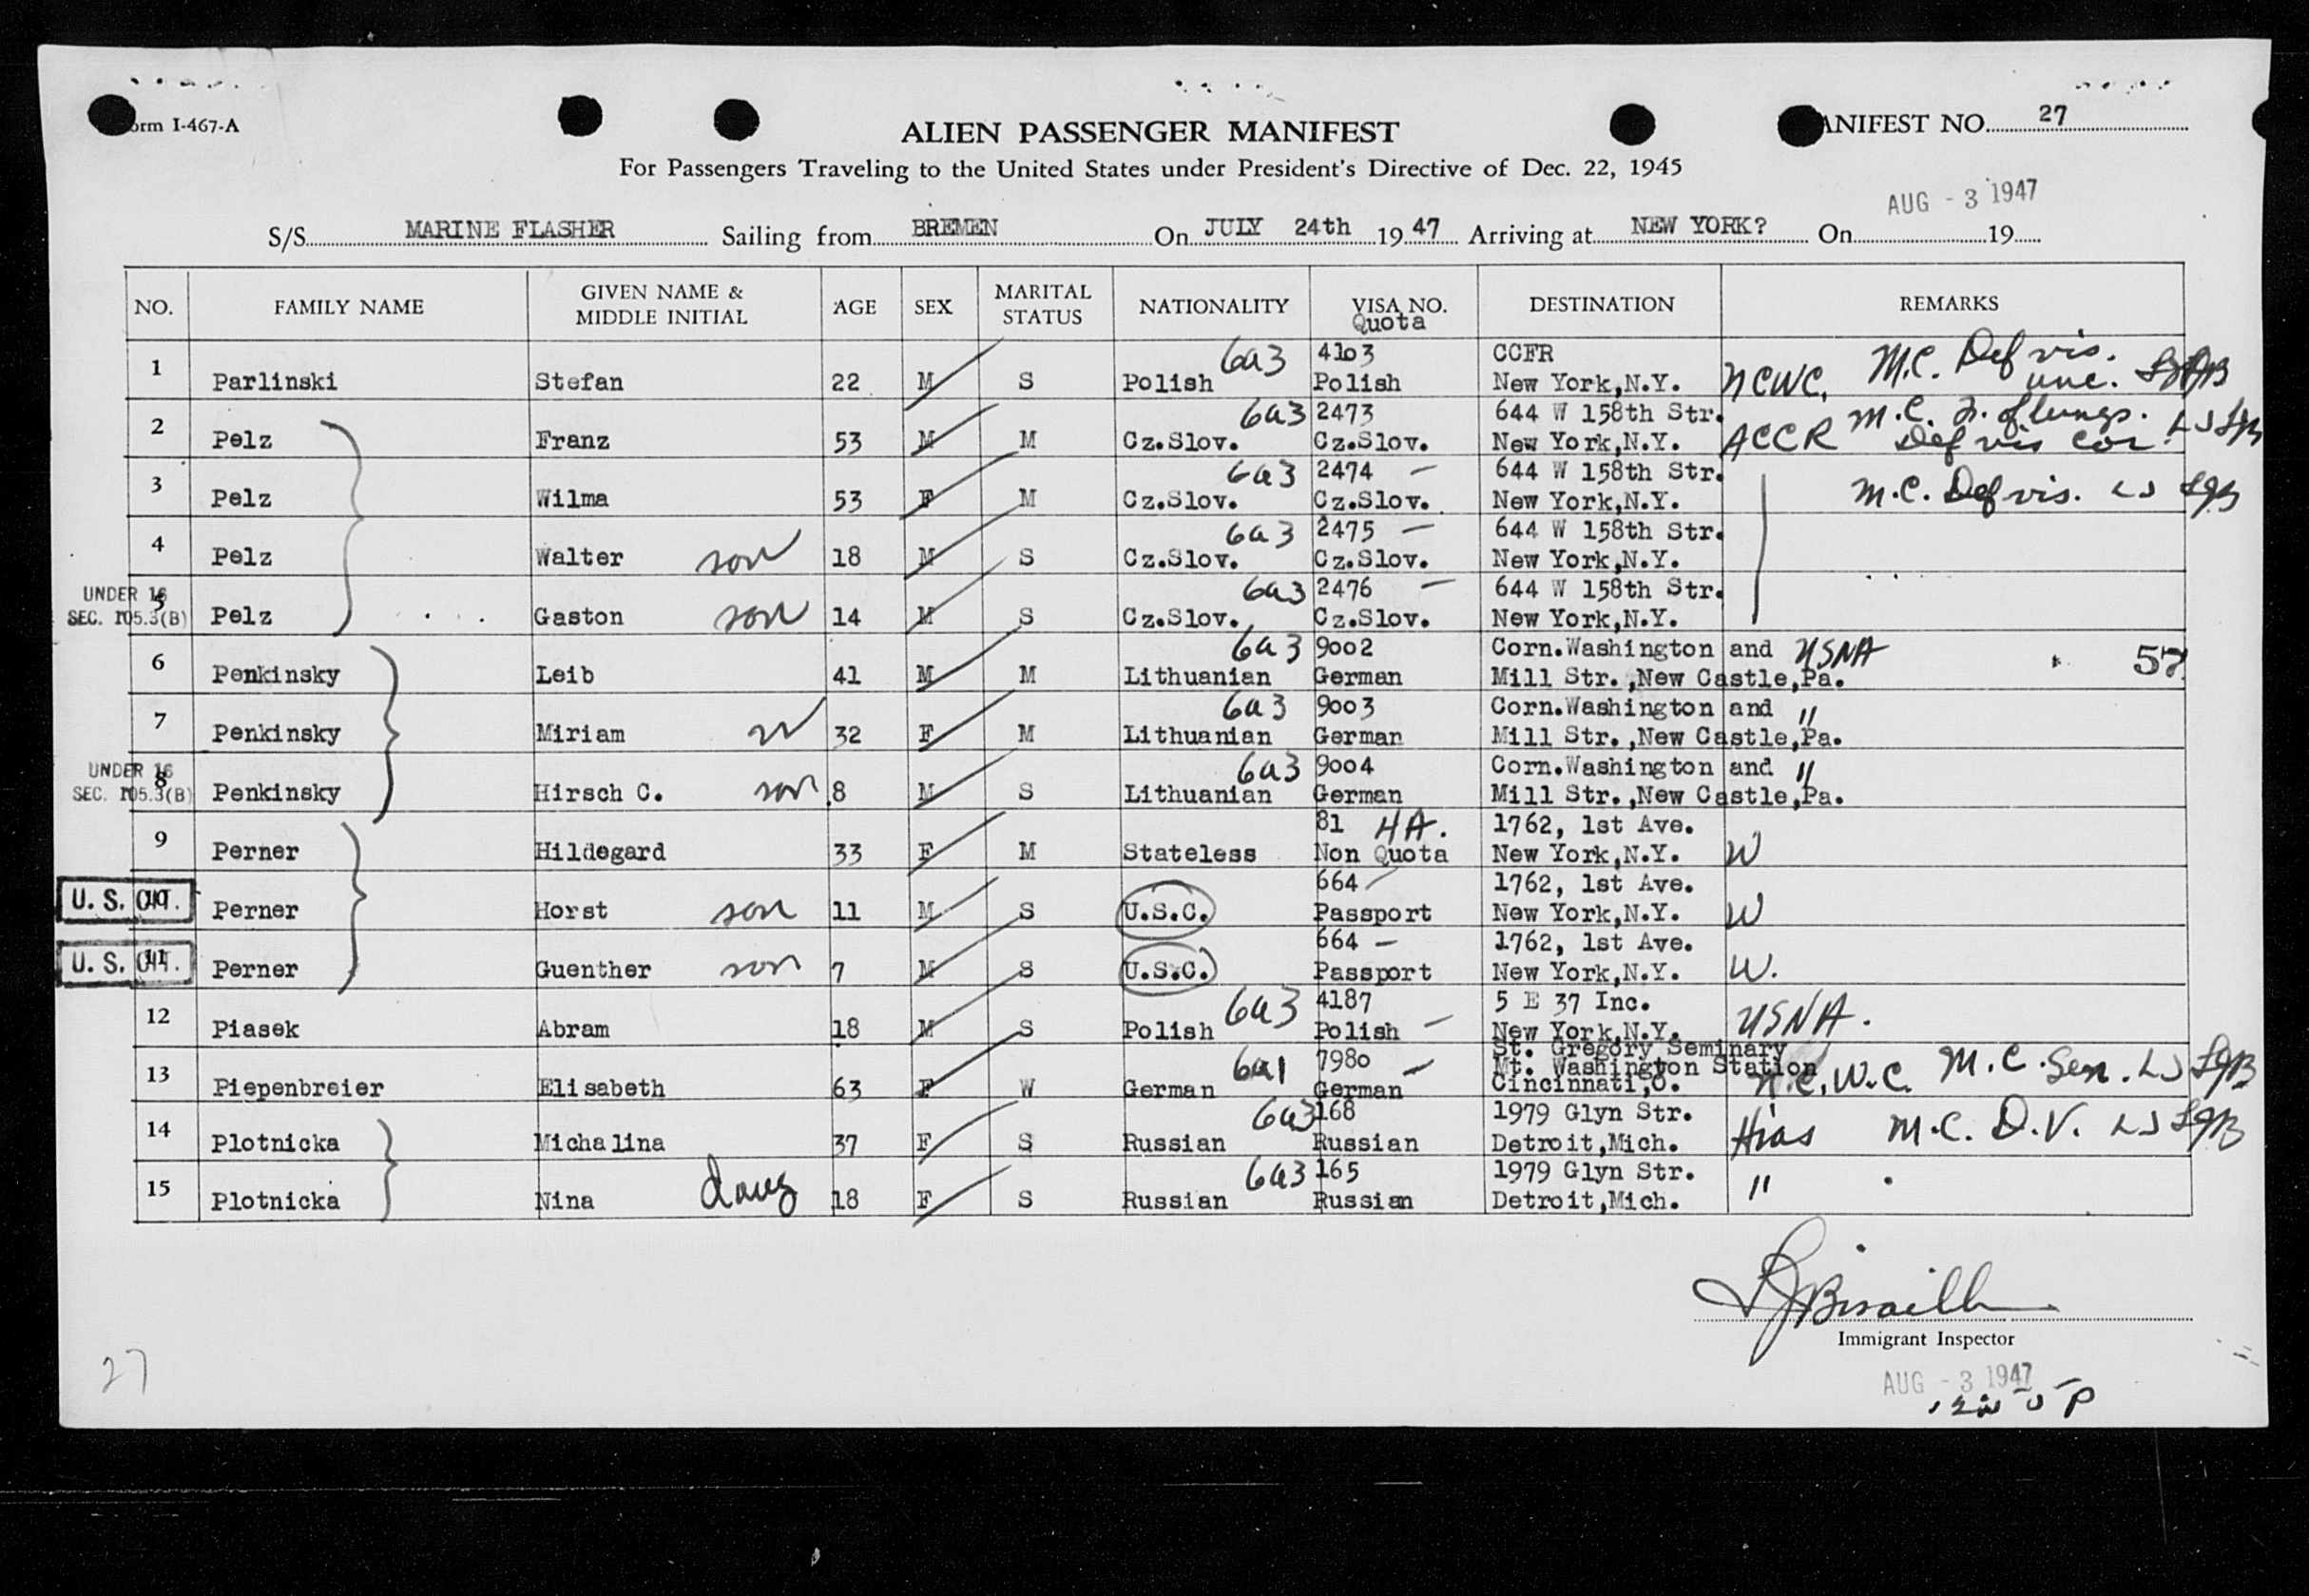 Form I-467-A
ALIEN PASSENGER MANIFEST
MANIFEST NO. 27
For Passengers Traveling to the United States under President's Directive of Dec. 22, 1945
AUG - 3 1947
S/S MARINE FLASHER Sailing from BREMEN On JULY 24th 19 47 Arriving at NEW YORK? On 19
NO. FAMILY NAME GIVEN NAME & MIDDLE INITIAL AGE SEX MARITAL STATUS NATIONALITY VISA NO. Quota DESTINATION REMARKS
6a3 4103 CCFR M.C. Def vis.
1 Parlinski Stefan 22 M S Polish Polish New York,N.Y. NCWC. unc.
6a3 2473 644 W 158th Str. M.C.
2 Pelz Franz 53 M M Cz.Slov. Cz.Slov. New York,N.Y. ACCR Def vis cor
6a3 2474 — 644 W 158th Str.
3 Pelz Wilma 53 F M Cz.Slov. Cz.Slov. New York,N.Y. M.C. Def vis.
6a3 2475 — 644 W 158th Str.
4 Pelz Walter son 18 M S Cz.Slov. Cz.Slov. New York,N.Y.
UNDER 16 6a3 2476 — 644 W 158th Str.
SEC. 105.3(B) 5 Pelz Gaston son 14 M S Cz.Slov. Cz.Slov. New York,N.Y.
6a3 9002 Corn.Washington and USNA
6 Penkinsky Leib 41 M M Lithuanian German Mill Str.,New Castle,Pa.
6a3 9003 Corn.Washington and "
7 Penkinsky Miriam w 32 F M Lithuanian German Mill Str.,New Castle,Pa.
UNDER 16 6a3 9004 Corn.Washington and "
SEC. 105.3(B) 8 Penkinsky Hirsch C. son 8 M S Lithuanian German Mill Str.,New Castle,Pa.
81 HA. 1762, 1st Ave.
9 Perner Hildegard 33 F M Stateless Non Quota New York,N.Y. W
664 1762, 1st Ave.
U. S. CIT. 10 Perner Horst son 11 M S U.S.C. Passport New York,N.Y. W
664 — 1762, 1st Ave.
U. S. CIT. 11 Perner Guenther son 7 M S U.S.C. Passport New York,N.Y. W.
6a3 4187 5 E 37 Inc.
12 Piasek Abram 18 M S Polish Polish — New York,N.Y. USNA.
St. Gregory Seminary
6a1 7980 — Mt. Washington Station
13 Piepenbreier Elisabeth 63 F W German German Cincinnati,O. N.C.W.C. M.C. Sen.
6a3 168 1979 Glyn Str.
14 Plotnicka Michalina 37 F S Russian Russian Detroit,Mich. Hias M.C. D.V.
6a3 165 1979 Glyn Str.
15 Plotnicka Nina daug 18 F S Russian Russian Detroit,Mich. "
Immigrant Inspector
27
AUG - 3 1947